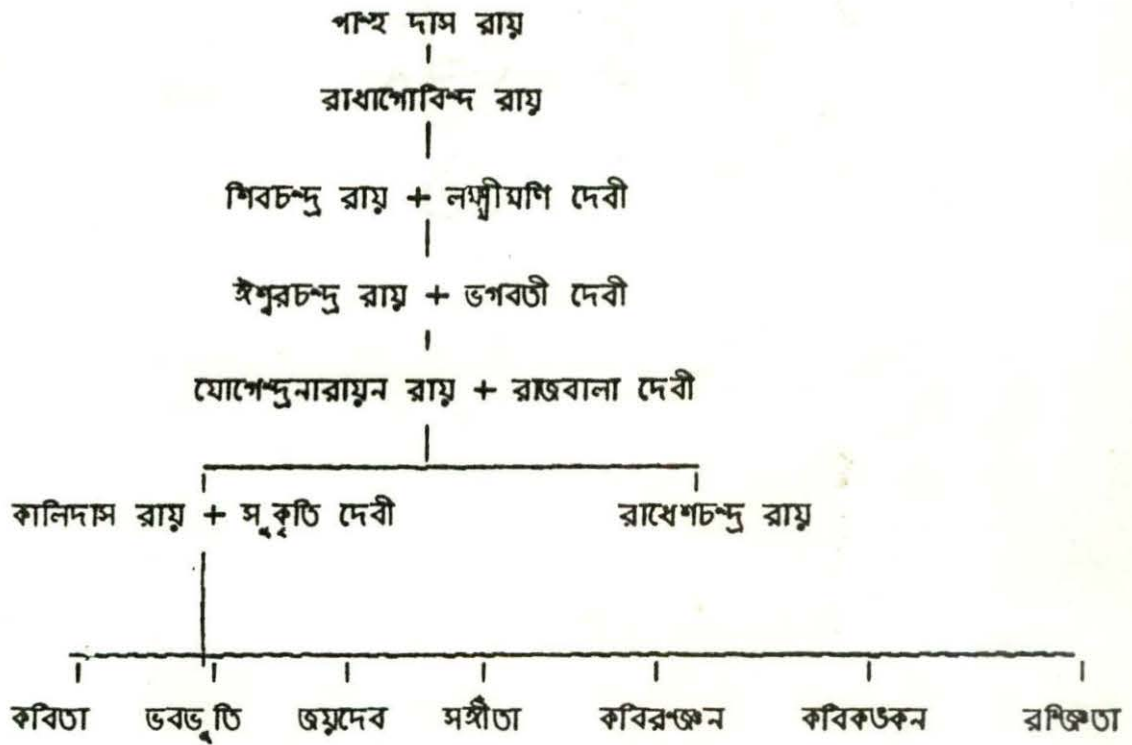 পান্হ দাস রায়
রাধাগোবিন্দ রায়
শিবচন্দ্র রায় + লক্ষ্মীমণি দেবী
ঈশ্বরচন্দ্র রায় + ভগবতী দেবী
যোগেন্দ্রনারায়ন রায় + রাজবালা দেবী
কালিদাস রায় + সুকৃতি দেবী রাধেশচন্দ্র রায়
কবিতা ভবভূতি জয়দেব সঙ্গীতা কবিরঞ্জন কবিকঙকন রঞ্জিতা